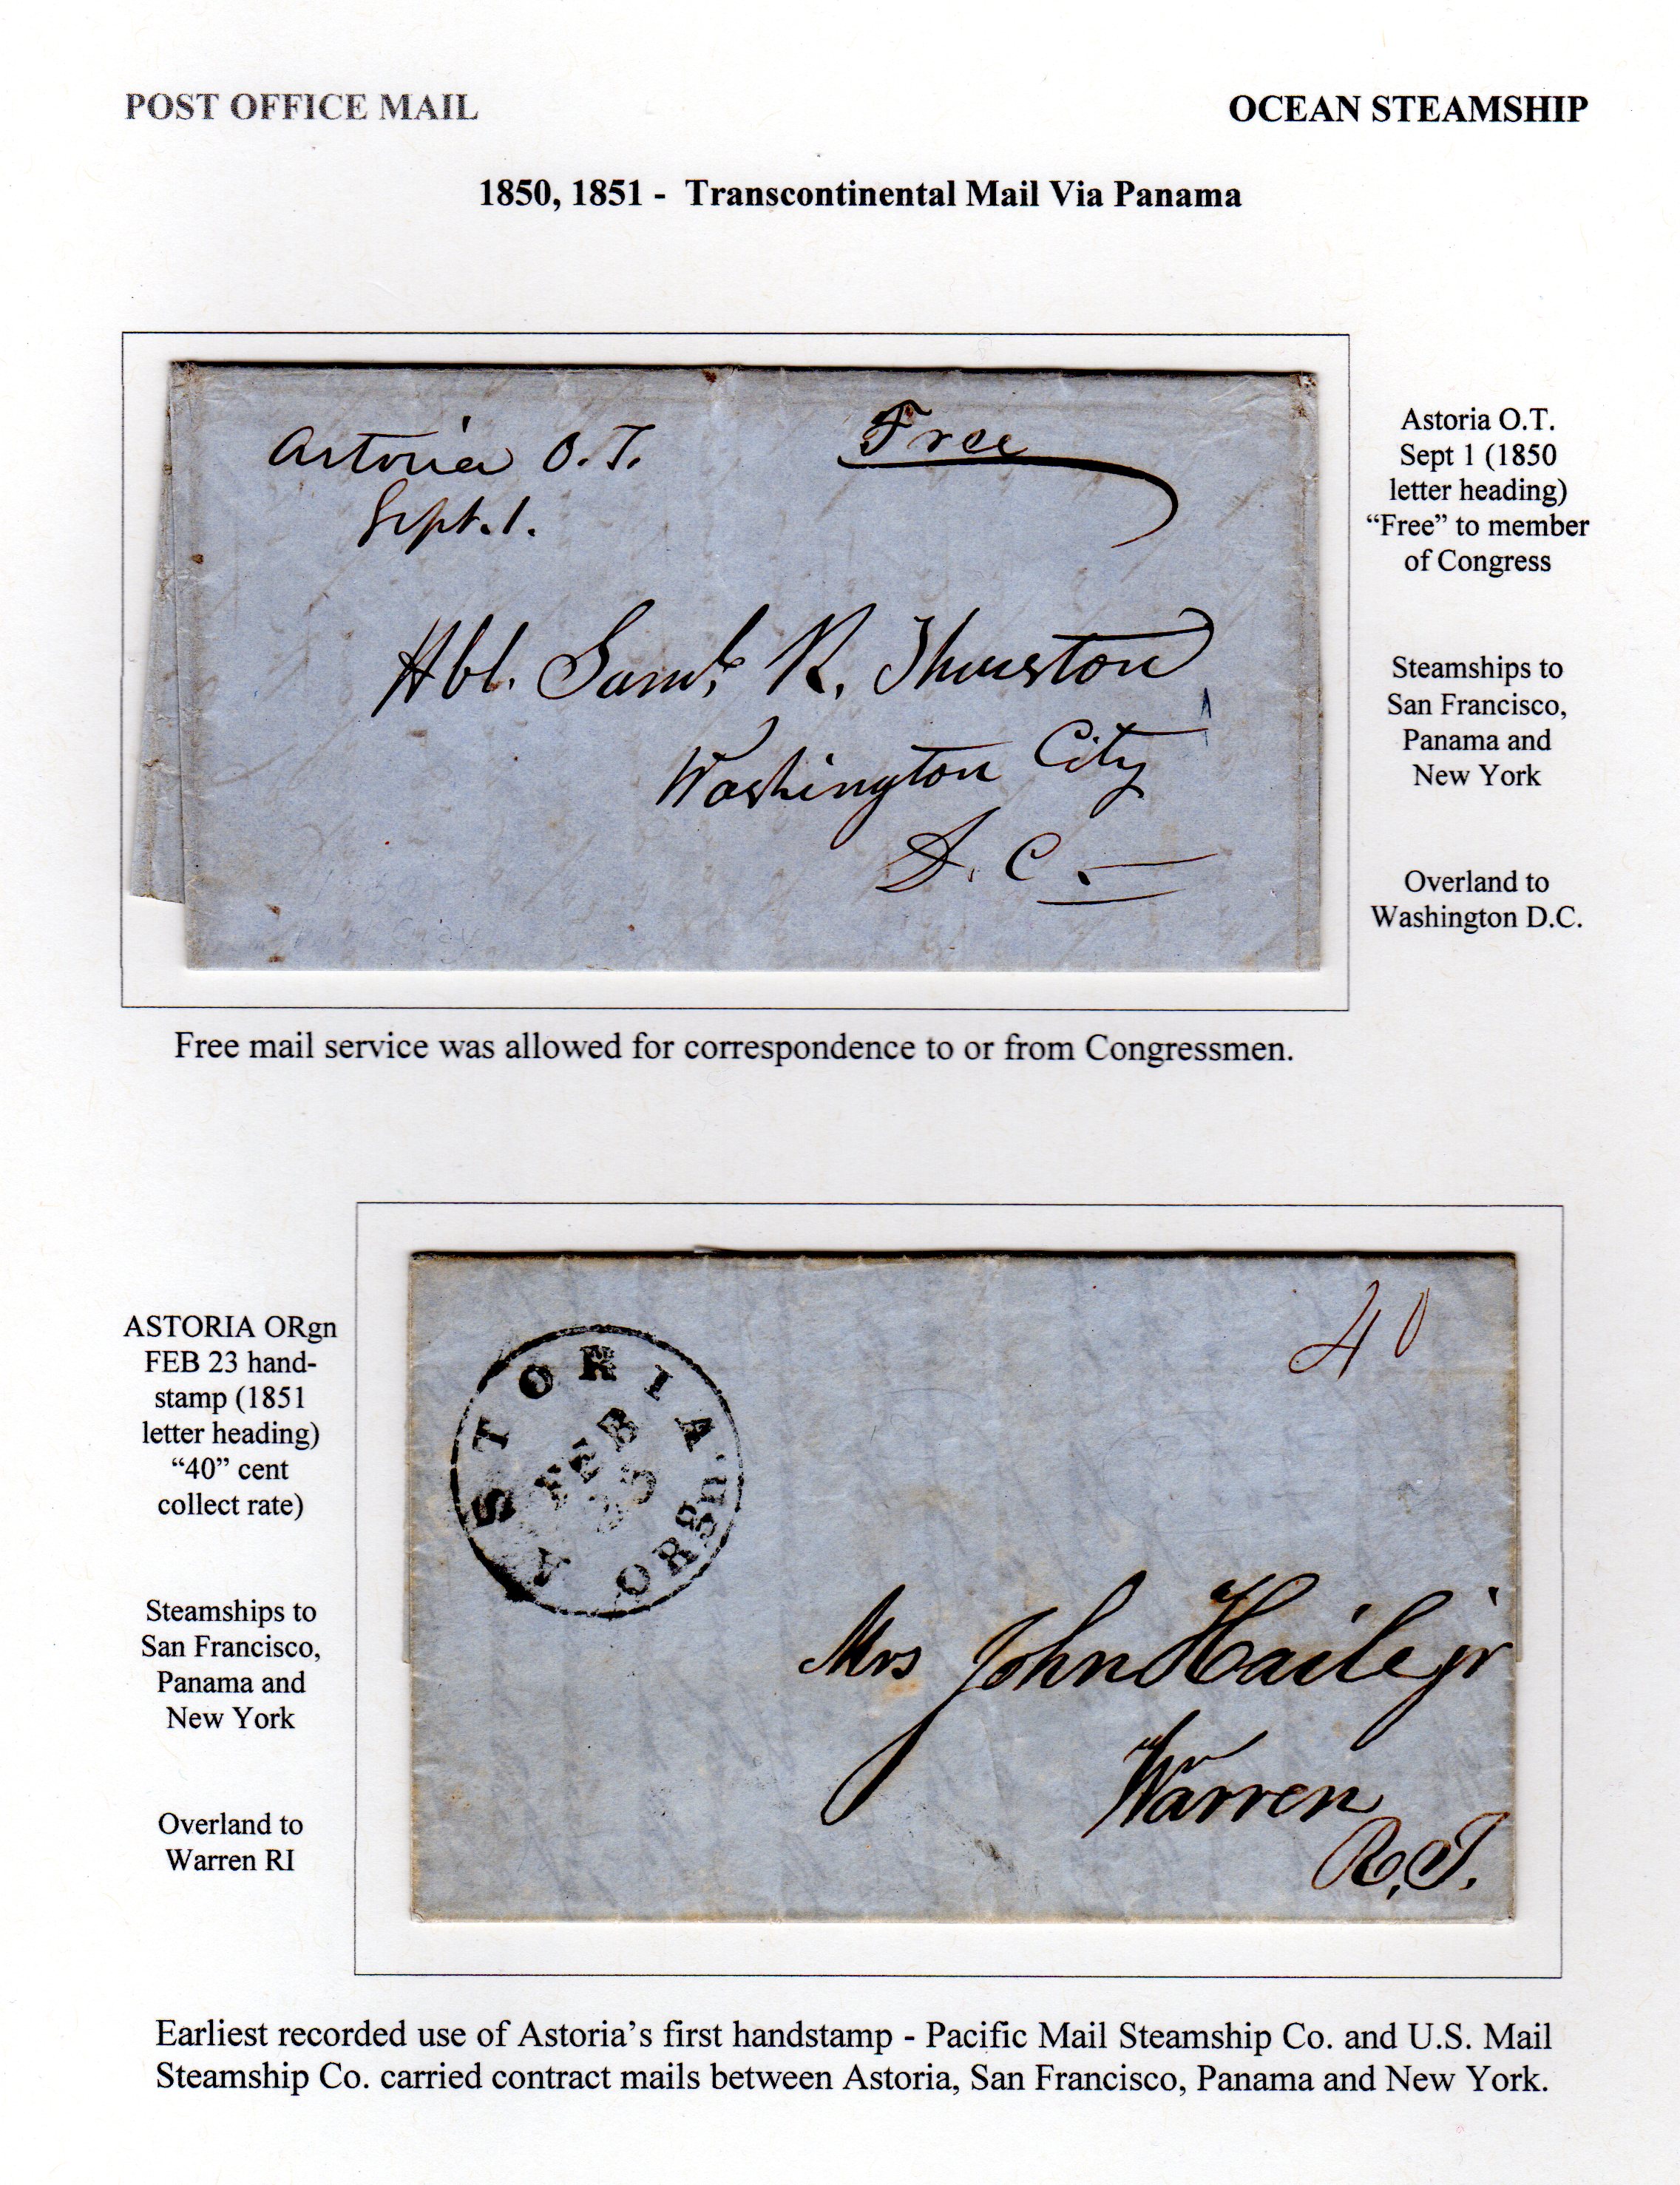 POST OFFICE MAIL
OCEAN STEAMSHIP
1850, 1851 - Transcontinental Mail Via Panama
Astoria O.T.
Sept. 1.
Free
Hbl. Saml. R. Thurston
Washington City
D. C.
Astoria O.T.
Sept 1 (1850
letter heading)
“Free” to member
of Congress
Steamships to
San Francisco,
Panama and
New York
Overland to
Washington D.C.
Free mail service was allowed for correspondence to or from Congressmen.
ASTORIA ORgn
FEB 23 hand-
stamp (1851
letter heading)
“40” cent
collect rate)
Steamships to
San Francisco,
Panama and
New York
Overland to
Warren RI
ASTORIA ORgn.
FEB
23
40
Mrs John Haile jr
Warren
R.I.
Earliest recorded use of Astoria’s first handstamp - Pacific Mail Steamship Co. and U.S. Mail
Steamship Co. carried contract mails between Astoria, San Francisco, Panama and New York.